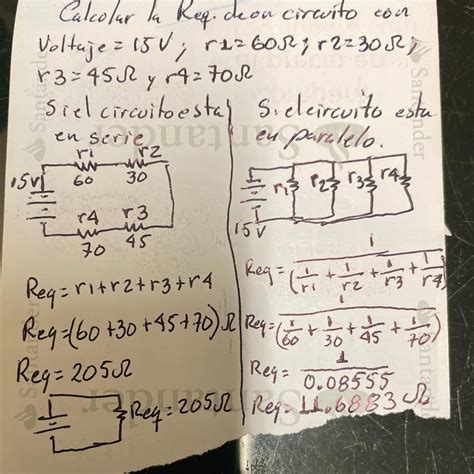 Calcolar la Req. de on circuito con
Voltaje = 15V ; r1 = 60Ω ; r2 = 30Ω ;
r3 = 45Ω y r4 = 70Ω
Si el circuito esta
en serie
r1 r2
60 30
15V
r4 r3
70 45
Req = r1 + r2 + r3 + r4
Req = (60 + 30 + 45 + 70) Ω
Req = 205Ω
Req = 205Ω
Si el circuito esta
en paralelo.
r1 r2 r3 r4
15V
Req = 1 / (1/r1 + 1/r2 + 1/r3 + 1/r4)
Req = 1 / (1/60 + 1/30 + 1/45 + 1/70)
Req = 1 / 0.08555
Req = 11.6883 Ω
Santander
Santander
Santander
Santander
Santander
Santander